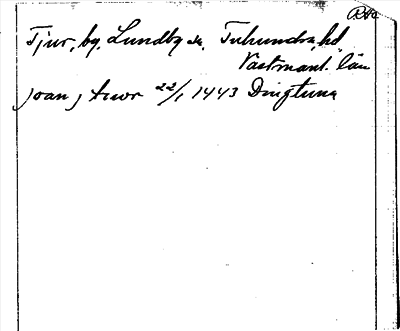 Tjur, by, Lundby sn, Tuhundra hd
Västmanl. län
joan j tiwr 22/1 1443 Dingtuna